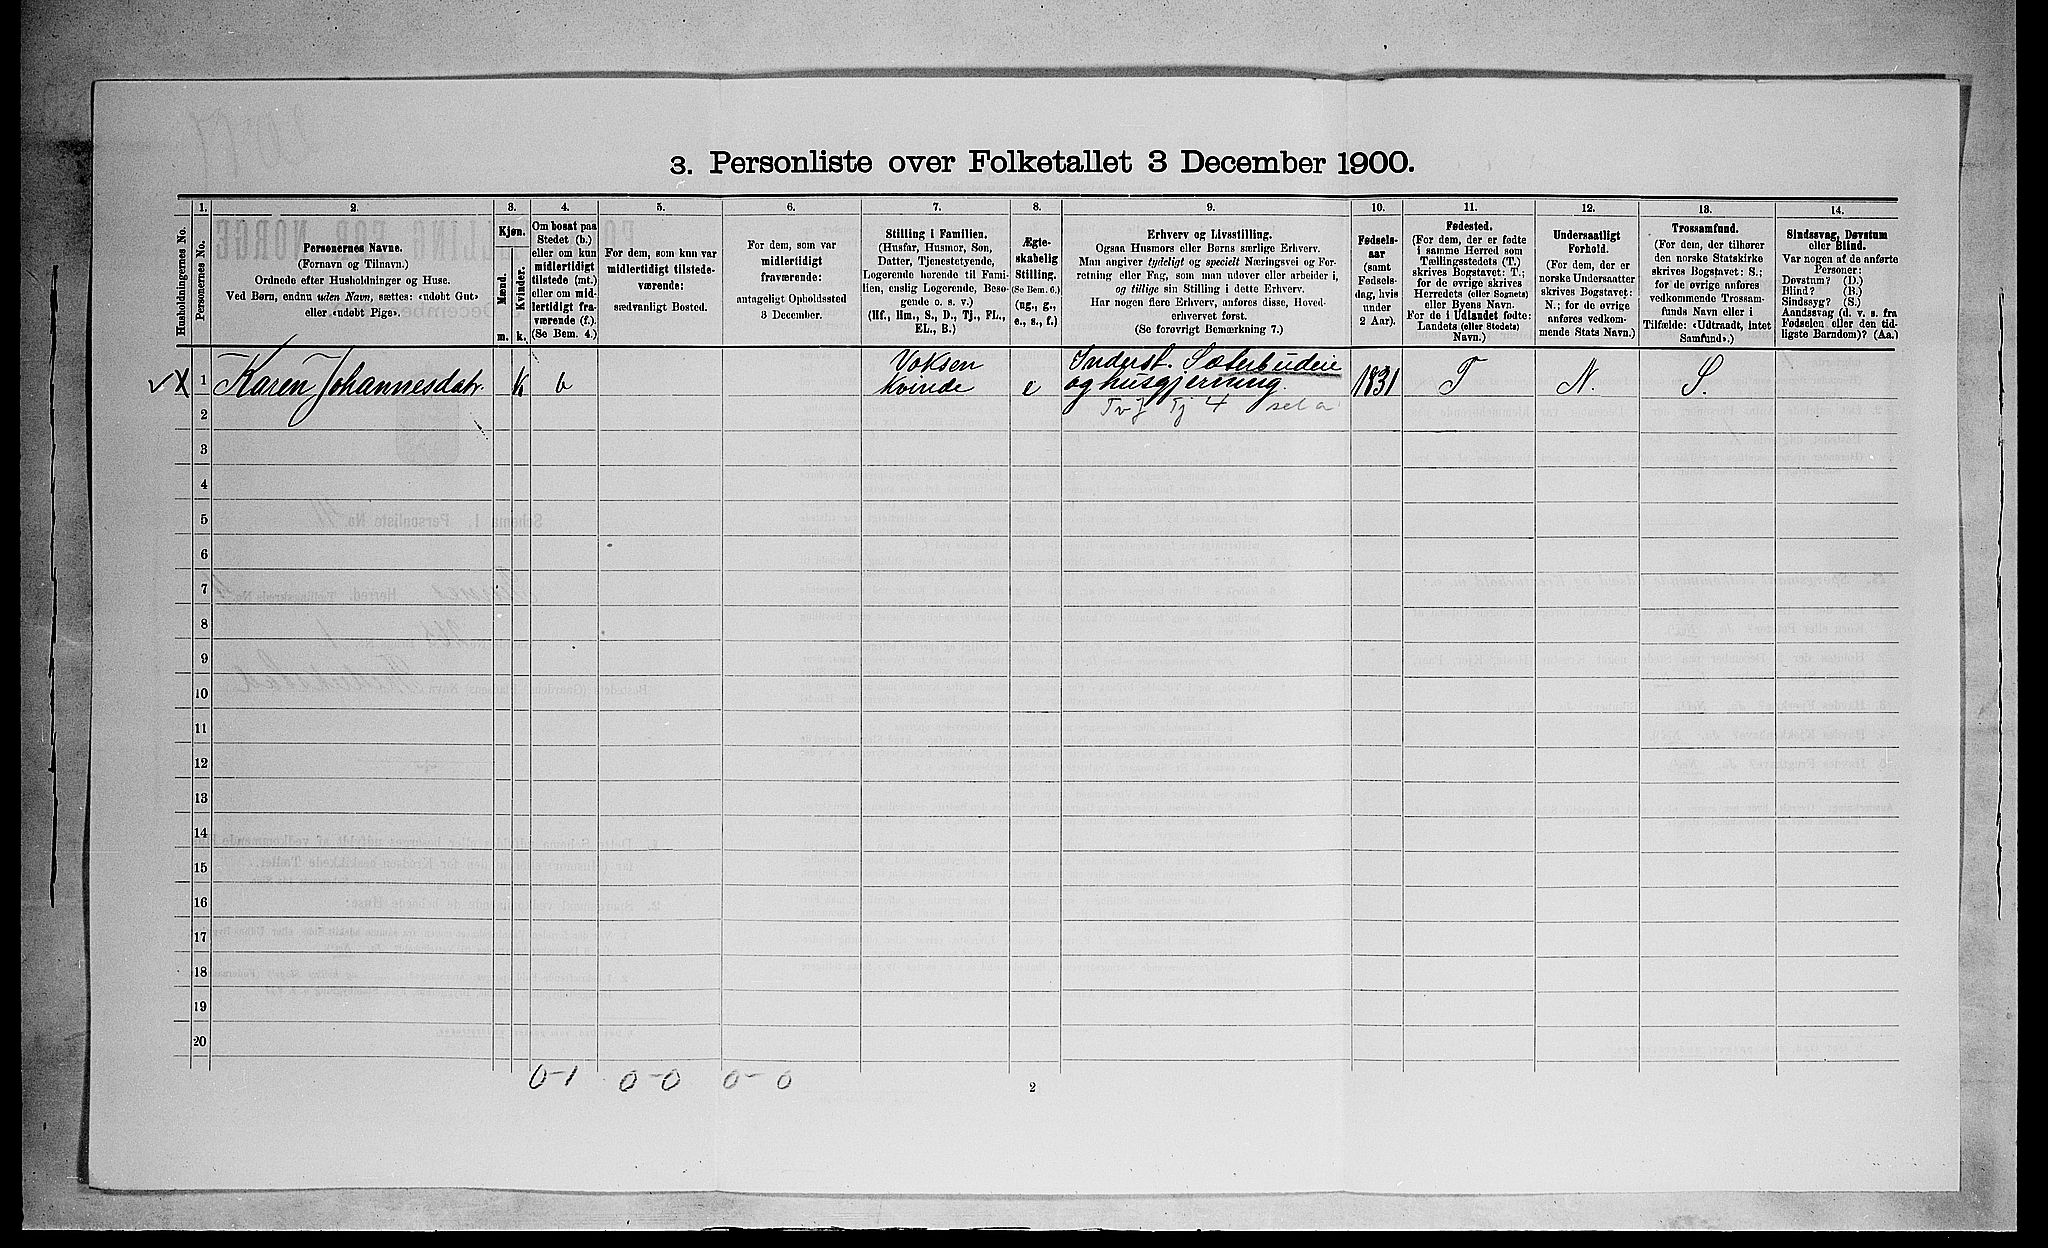 3. Personliste over Folketallet 3 December 1900.
Husholdningernes No.
1.
Personernes No.
2.
Personernes Navne.
(Fornavn og Tilnavn.)
Ordnede efter Husholdninger og Huse.
Ved Børn, endnu uden Navn, sættes: «udøbt Gut»
eller «udøbt Pige».
3.
Kjøn.
Mænd.
Kvinder.
m.
k.
4.
Om bosat paa
Stedet (b.)
eller om kun
midlertidigt
tilstede (mt.)
eller om mid-
lertidigt fra-
værende (f.).
(Se Bem. 4.)
5.
For dem, som kun var
midlertidigt tilstede-
værende:
sædvanligt Bosted.
6.
For dem, som var
midlertidigt
fraværende:
antageligt Opholdssted
3 December.
7.
Stilling i Familien.
(Husfar, Husmor, Søn,
Datter, Tjenestetyende,
Logerende hørende til Fami-
lien, enslig Logerende, Besø-
gende o. s. v.)
(Hf., Hm., S., D., Tj., FL.,
EL., B.)
8.
Ægte-
skabelig
Stilling.
(Se Bem. 6.)
(ug., g.,
e., s., f.)
9.
Erhverv og Livsstilling.
Ogsaa Husmors eller Børns særlige Erhverv.
Man angiver tydeligt og specielt Næringsvei og For-
retning eller Fag, som man udøver eller arbeider i,
og tillige sin Stilling i dette Erhverv.
Har nogen flere Erhverv, anføres disse, Hoved-
erhvervet først.
(Se forøvrigt Bemærkning 7.)
10.
Fødsels-
aar
(samt
Fødsels-
dag, hvis
under
2 Aar).
11.
Fødested.
(For dem, der er fødte
i samme Herred som
Tællingsstedets (T.)
skrives Bogstavet: T.;
for de øvrige skrives
Herredets (eller Sognets)
eller Byens Navn.
For de i Udlandet fødte:
Landets (eller Stedets)
Navn.)
12.
Undersaatligt
Forhold.
(For dem, der er
norske Undersaatter
skrives Bogstavet:
N.; for de øvrige
anføres vedkom-
mende Stats Navn.)
13.
Trossamfund.
(For dem, der tilhører
den norske Statskirke
skrives Bogstavet: S.;
for de øvrige anføres
vedkommende Trossam-
funds Navn eller i
Tilfælde: «Udtraadt, intet
Samfund».)
14.
Sindssvag, Døvstum
eller Blind.
Var nogen af de anførte
Personer:
Døvstum? (D.)
Blind? (B.)
Sindssyg? (S.)
Aandssvag (d. v. s. fra
Fødselen eller den tid-
ligste Barndom)? (Aa.)
X 1 Karen Johannesdatr k b Voksen kvinde e Inderst. Sæterbudeie og husgjerning. 1831 T N. S.
Tj 4
2
3
4
5
6
7
8
9
10
11
12
13
14
15
16
17
18
19
20
0-1 0-0 0-0
2